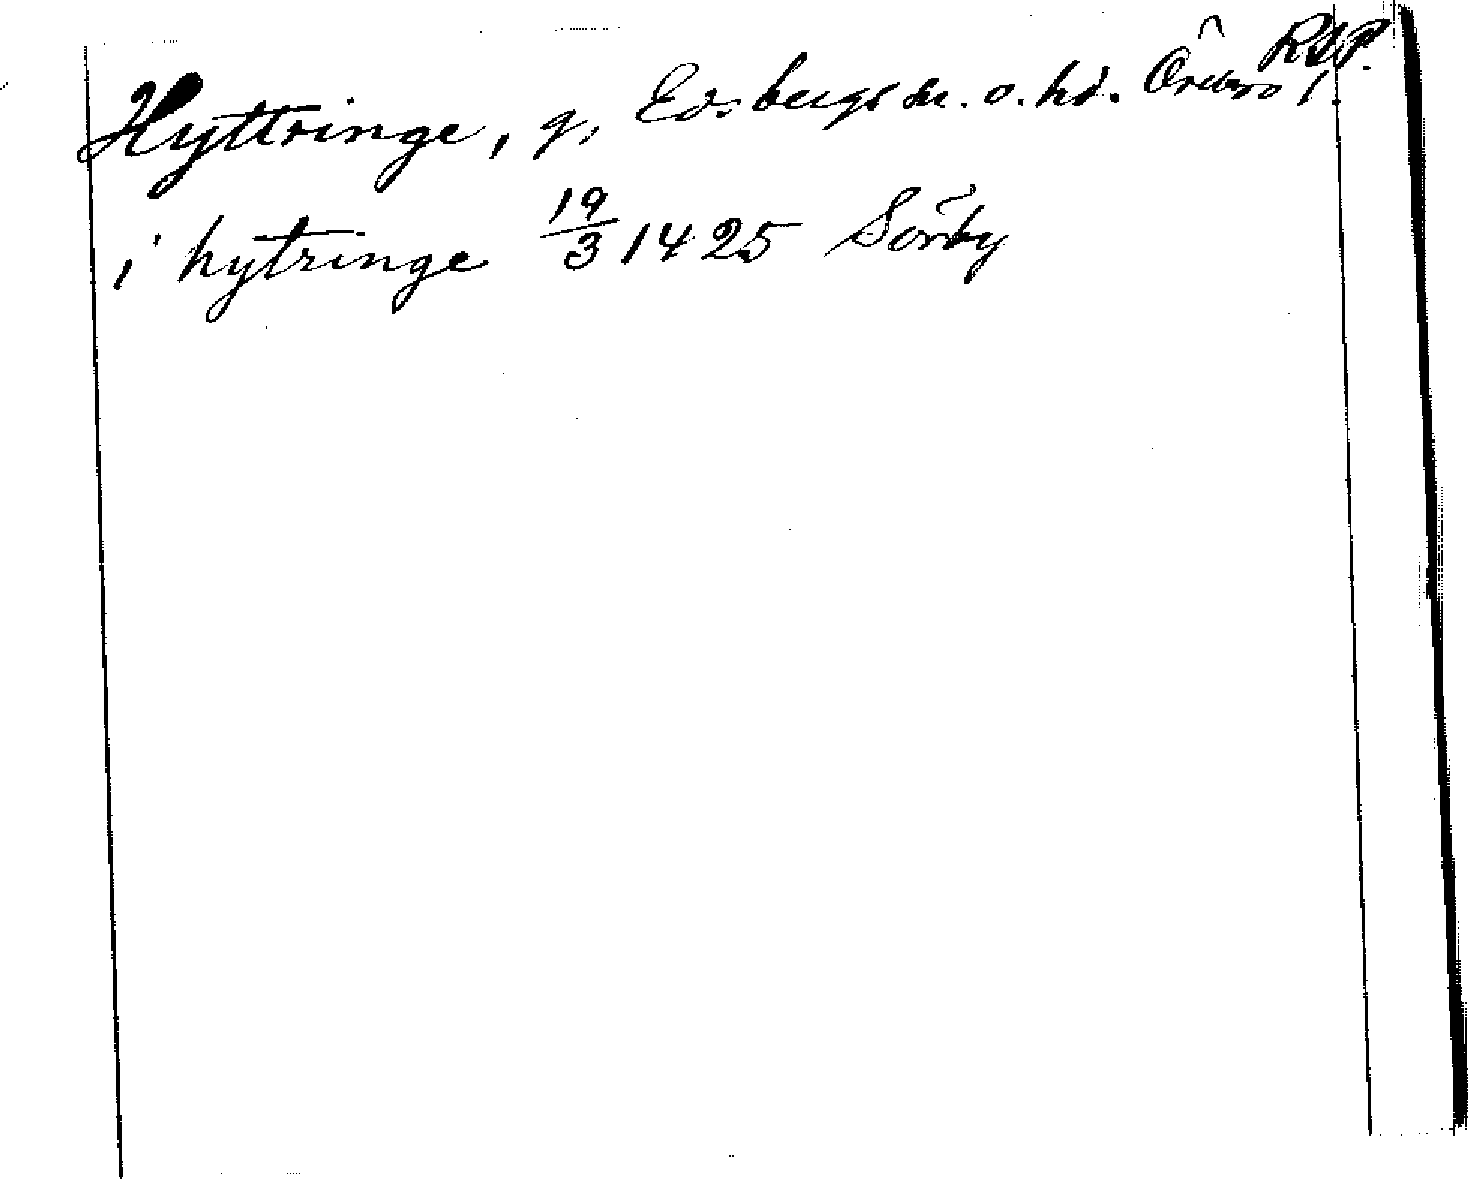 Hyttringe, g, Edsbergs sn. o. hd. Örebro l. RAP.
i hytringe 19/3 1425 Sörby